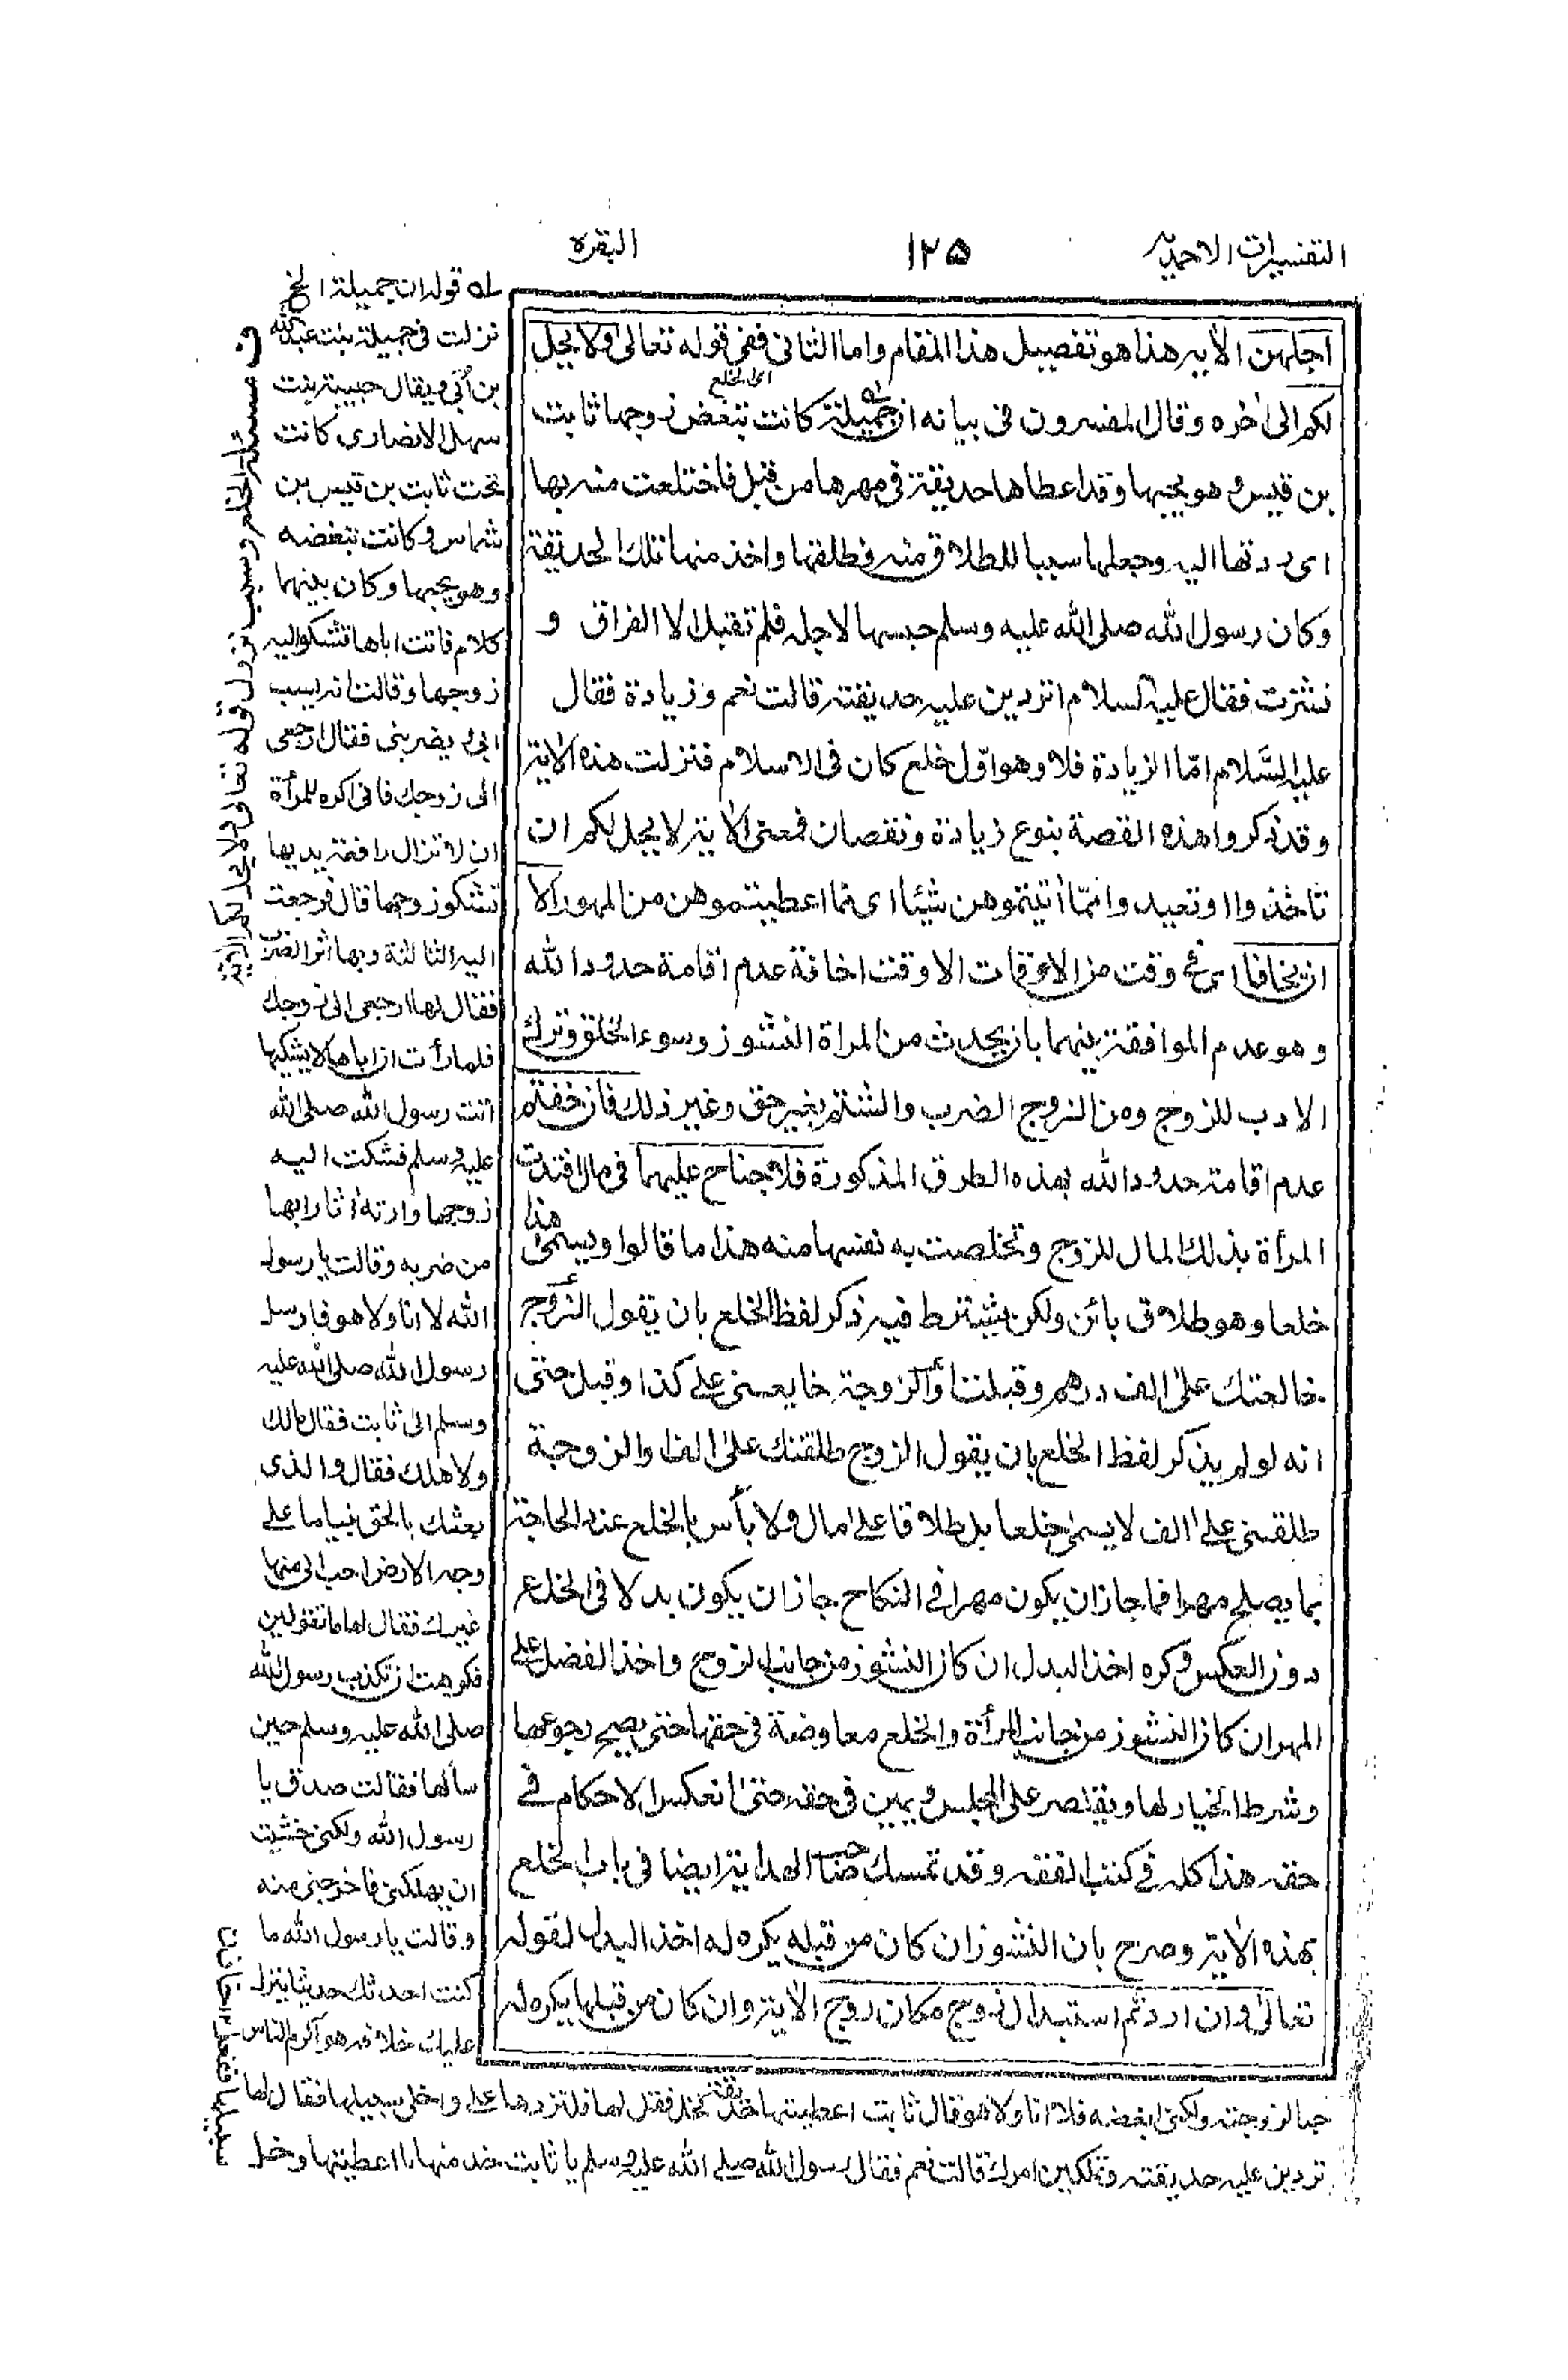 التفسيرات الاحمديه ١٢٥ البقره
اجلهن الأيه هذا هو تفصيل هذا المقام واما الثانى ففى قوله تعالى ولا يحل
لكم الى اٰخره وقال المفسرون فى بيانه ان جميلة كانت تبغض زوجها ثابت
اى الخلع
بن قيس وهو يحبها وقد اعطاها حديقة فى مهرها من قبل فاختلعت منه بها
اى ردتها اليه وجعلها سببا للطلاق منه فطلقها واخذ منها تلك الحديقة
وكان رسول الله صلى الله عليه وسلم حبسها لاجله فلم تقبل الا الفراق و
نشزت فقال عليه السلام اتردين عليه حديقته قالت نعم وزيادة فقال
عليه السَّلام امّا الزيادة فلا وهو اوّل خلع كان فى الاسلام فنزلت هذه الاٰية
وقد ذكروا هذه القصة بنوع زيادة ونقصان فمعنى الاٰية لا يحل لكم ان
تاخذوا اوتعيدوا ممّا اٰتيتموهن شيئا اى مما اعطيتموهن من المهور الا
ان يخافا اى فى وقت من الاوقات الا وقت اخافة عدم اقامة حدود الله
وهو عدم الموافقة بينهما بان يحدث من المراة النشوز وسوء الخلق وترك
الادب للزوج ومن الزوج الضرب والشتم بغير حق وغير ذلك فان خفتم
عدم اقامة حدود الله بهذه الطرق المذكورة فلا جناح عليهما فى مال افتدت
المرأة بذلك المال للزوج وتخلصت به نفسها منه هذا ما قالوا ويسمى هذا
خلعا وهو طلاق بائن ولكن يشترط فيه ذكر لفظ الخلع بان يقول الزوج
خالعتك على الف درهم وقبلت أو الزوجة خالعنى على كذا وقبل حتى
انه لو لم يذكر لفظ الخلع بان يقول الزوج طلقتك على الف او الزوجة
طلقنى على الف لا يسمى خلعا بل طلاقا على مال ولا بأس بالخلع عند الحاجة
بما يصلح مهرا فما جاز ان يكون مهرا فى النكاح جاز ان يكون بدلا فى الخلع
دون العكس وكره اخذ البدل ان كان النشوز من جانب الزوج واخذ الفضل على
المهر ان كان النشوز من جانب المرأة والخلع معاوضة فى حقها حتى يصح رجوعها
وشرط الخيار لها ويقتصر على المجلس ويمين فى حقه حتى انعكس الاحكام فى
حقه هذا كله فى كتب الفقه وقد تمسك صاحب الهداية ايضا فى باب الخلع
بهذه الاٰية وصرح بان النشوز ان كان من قبله يكره له اخذ البدل لقوله
تعالى وان اردتم استبدال زوج مكان زوج الاٰية وان كان من قبلها يكره له
له قوله ان جميلة الخ
نزلت فى جميلة بنت عبد الله
بن أبى ويقال حبيبة بنت
سهل الانصارى كانت
تحت ثابت بن قيس بن
شماس وكانت تبغضه
وهو يحبها وكان بينهما
كلام فاتت اباها تشكو اليه
زوجها وقالت انه يسب
ابى ويضربنى فقال ارجعى
الى زوجك فانى اكره للمرأة
ان لا تزال رافعة يديها
تشكو زوجها قال فرجعت
اليه الثالثة وبها اثر الضرب
فقال لها ارجعى الى زوجك
فلما رأت ان اباها لا يشكيها
اتت رسول الله صلى الله
عليه وسلم فشكت اليه
زوجها وارته اٰثارا بها
من ضربه وقالت يا رسول
الله لا انا ولا هو فارسل
رسول الله صلى الله عليه
وسلم الى ثابت فقال مالك
ولاهلك فقال والذى
بعثك بالحق نبيا ما على
وجه الارض احب الى منها
غيرك فقال لها ما تقولين
فكرهت ان تكذب رسول الله
صلى الله عليه وسلم حين
سألها فقالت صدق يا
رسول الله ولكن خشيت
ان يهلكنى فاخرجنى منه
وقالت يا رسول الله ما
كنت احدثك حديثا ينزل
عليك خلافه هو اكرم الناس
حبا لزوجته ولكنى ابغضه فلا انا ولا هو قال ثابت اعطيتها حديقة نخل فقل لها فلتردها على واخلى سبيلها فقال لها
تردين عليه حديقته وتملكين امرك قالت نعم فقال رسول الله صلى الله عليه وسلم يا ثابت خذ منها ما اعطيتها وخل
سبيلها ففعل
ف مسئلة الخلع وسبب نزول قوله تعالى ولا يحل لكم الاٰية